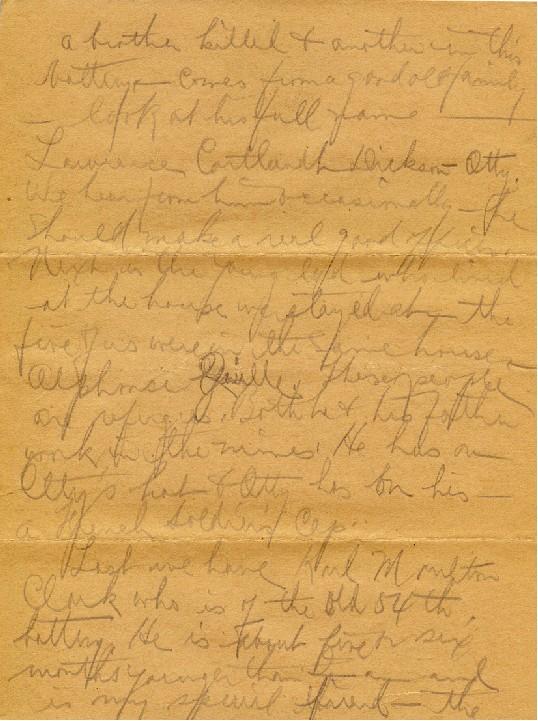 a brother killed & another in this
battery - comes from a good old family
- look at his full name -
Lawrence Cortlandt Dickson Otty.
We hear from him occasionally - he
should make a real good officer.
Next is the young lad who lived
at the house we stayed at - the
five of us were in the same house -
Alphonse These people
are refugees. Both he & his father
work in the mines. He has on
Otty's hat & Otty has on his -
a French soldier's cap.
Last we have Karl Moulton
Clark who is of the old 54th
battery. He is about five or six
months younger than I am and
is my special friend - the